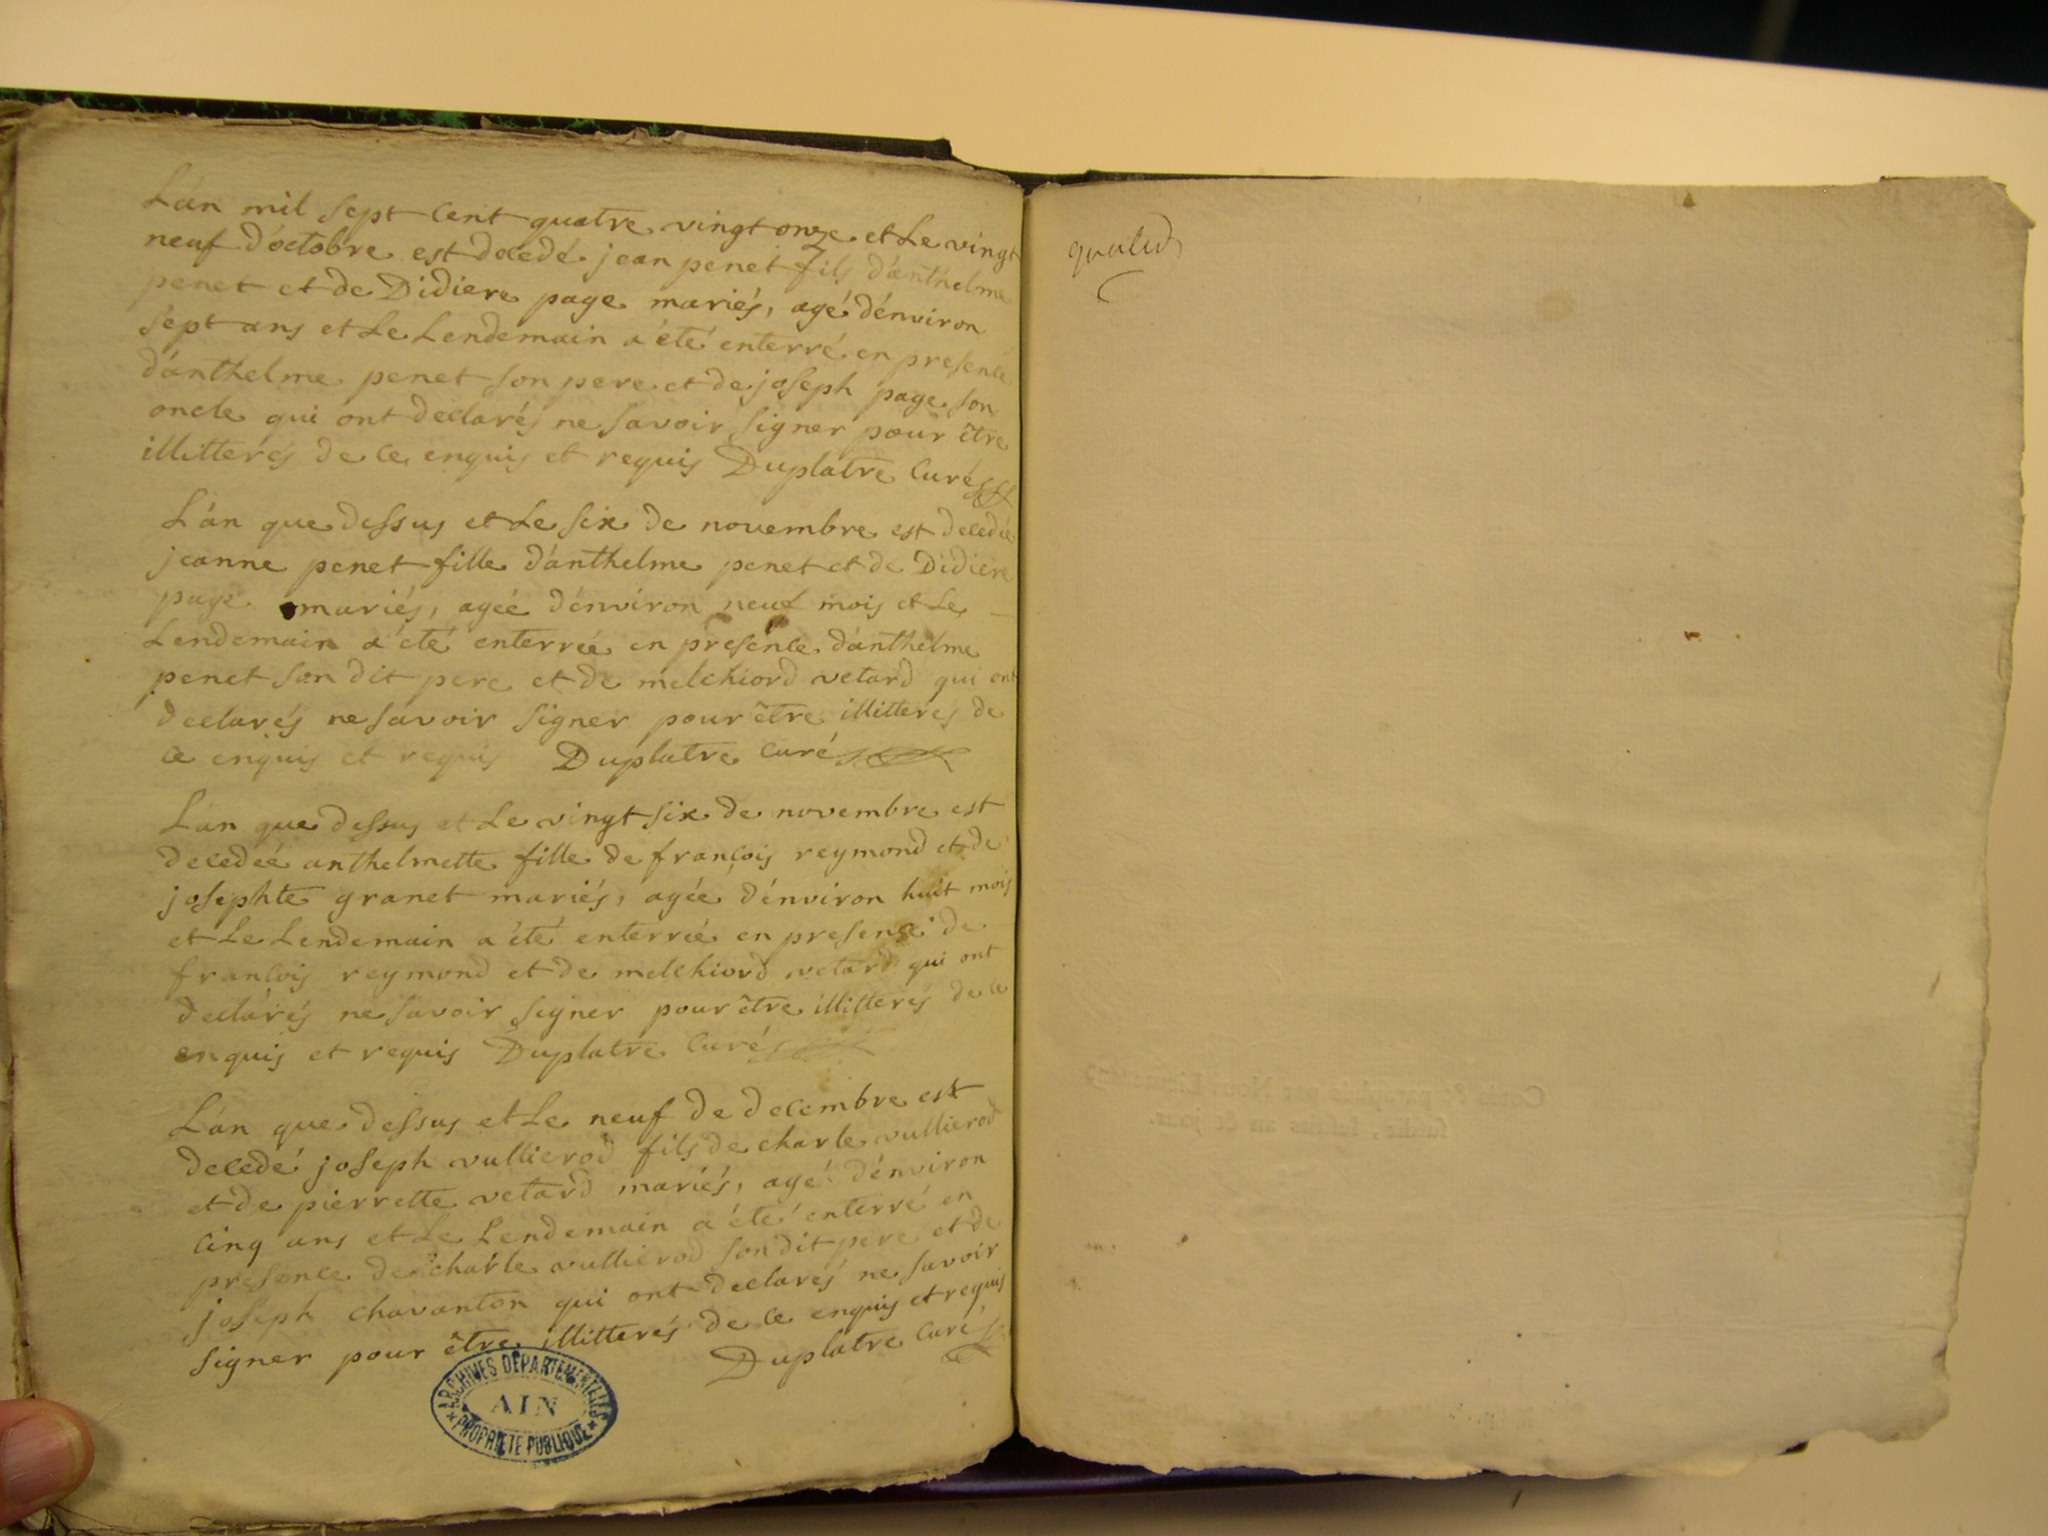 L'án mil sept cent quatre vingt onze et Le vingt
neuf d'octobre est decedé jean penet fils d'anthelme
penet et de Didiere page mariés, agé d'énviron
sept ans et Le Lendemain a été enterré en presence
d'ánthelme penet son pere et de joseph page son
oncle qui ont declarés ne savoir signer pour être
illitterés de ce enquis et requis Duplatre Curé
L'án que dessus et Le six de novembre est decedée
jeanne penet fille d'ánthelme penet et de Didiere
page mariés, agée d'énviron neuf mois et Le
Lendemain a été enterrée en presence d'ánthelme
penet son dit pere et de melchiord vetard qui ont
declarés ne savoir signer pour être illitterés de
ce enquis et requis Duplatre Curé
L'án que dessus et Le vingt six de novembre est
decedée anthelmette fille de françois reymond et de
josephte granet mariés, agée d'énviron huit mois
et Le Lendemain a été enterrée en presence de
françois reymond et de melchiord vetard qui ont
declárés ne savoir signer pour être illitterés de ce
enquis et requis Duplatre Curé
L'án que dessus et Le neuf de decembre est
decedé joseph vullierod fils de charle vullierod
et de pierrette vetard mariés, agé d'énviron
cinq ans et Le Lendemain a été enterré en
presence de charle vullierod son dit pere et de
joseph chavanton qui ont declarés ne savoir
signer pour être illitterés de ce enquis et requis
Duplatre Curé
ARCHIVES DÉPARTEMENTALES
AIN
PROPRIÉTÉ PUBLIQUE